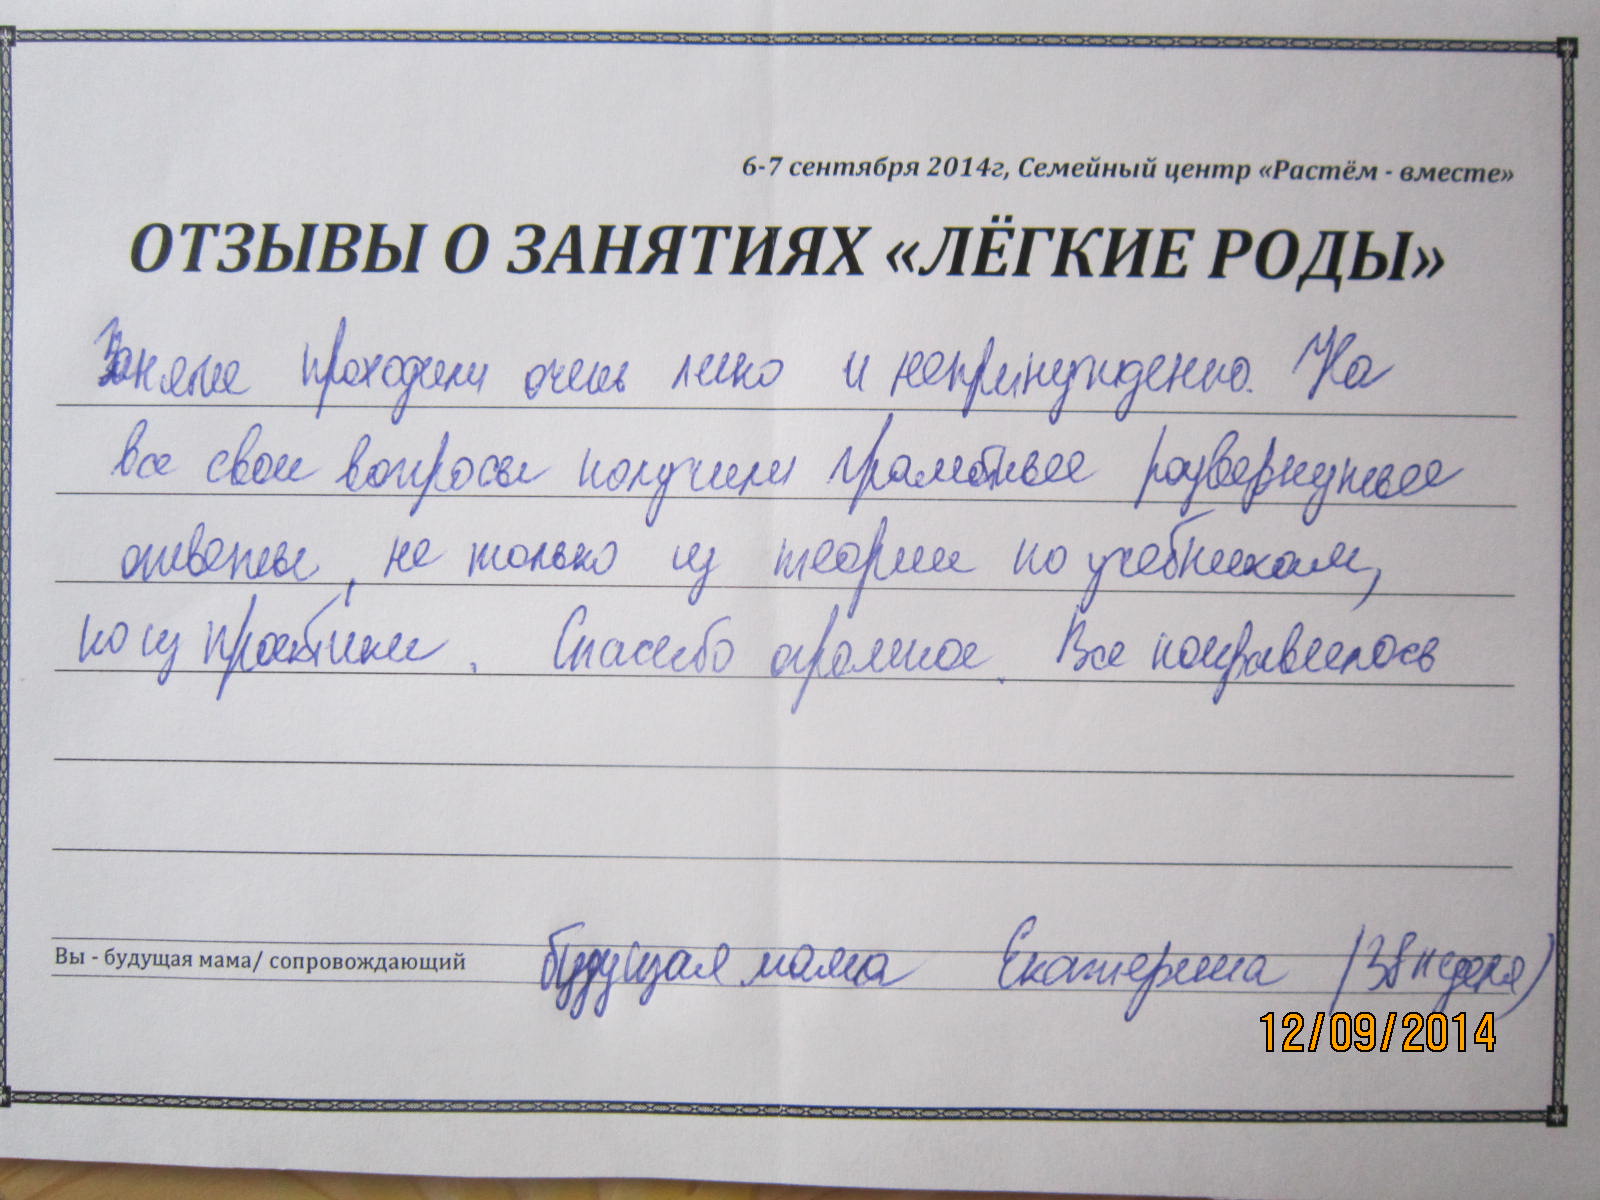 6-7 сентября 2014г, Семейный центр «Растём - вместе»
ОТЗЫВЫ О ЗАНЯТИЯХ «ЛЁГКИЕ РОДЫ»
Занятие проходили очень легко и непринужденно. На
все свои вопросы получили грамотные развернутые
ответы, не только из теории по учебникам,
но из практики. Спасибо огромное. Все понравилось
Вы - будущая мама/ сопровождающий будущая мама Екатерина (38 неделя)
12/09/2014